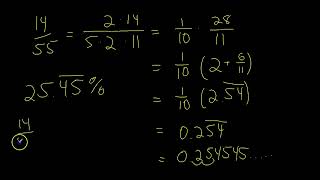 14/55 = 2·14/5·2·11 = 1/10 · 28/11
= 1/10 (2 + 6/11)
25.4̅5̅% = 1/10 (2.5̅4̅)
= 0.25̅4̅
14/
= 0.254545.....